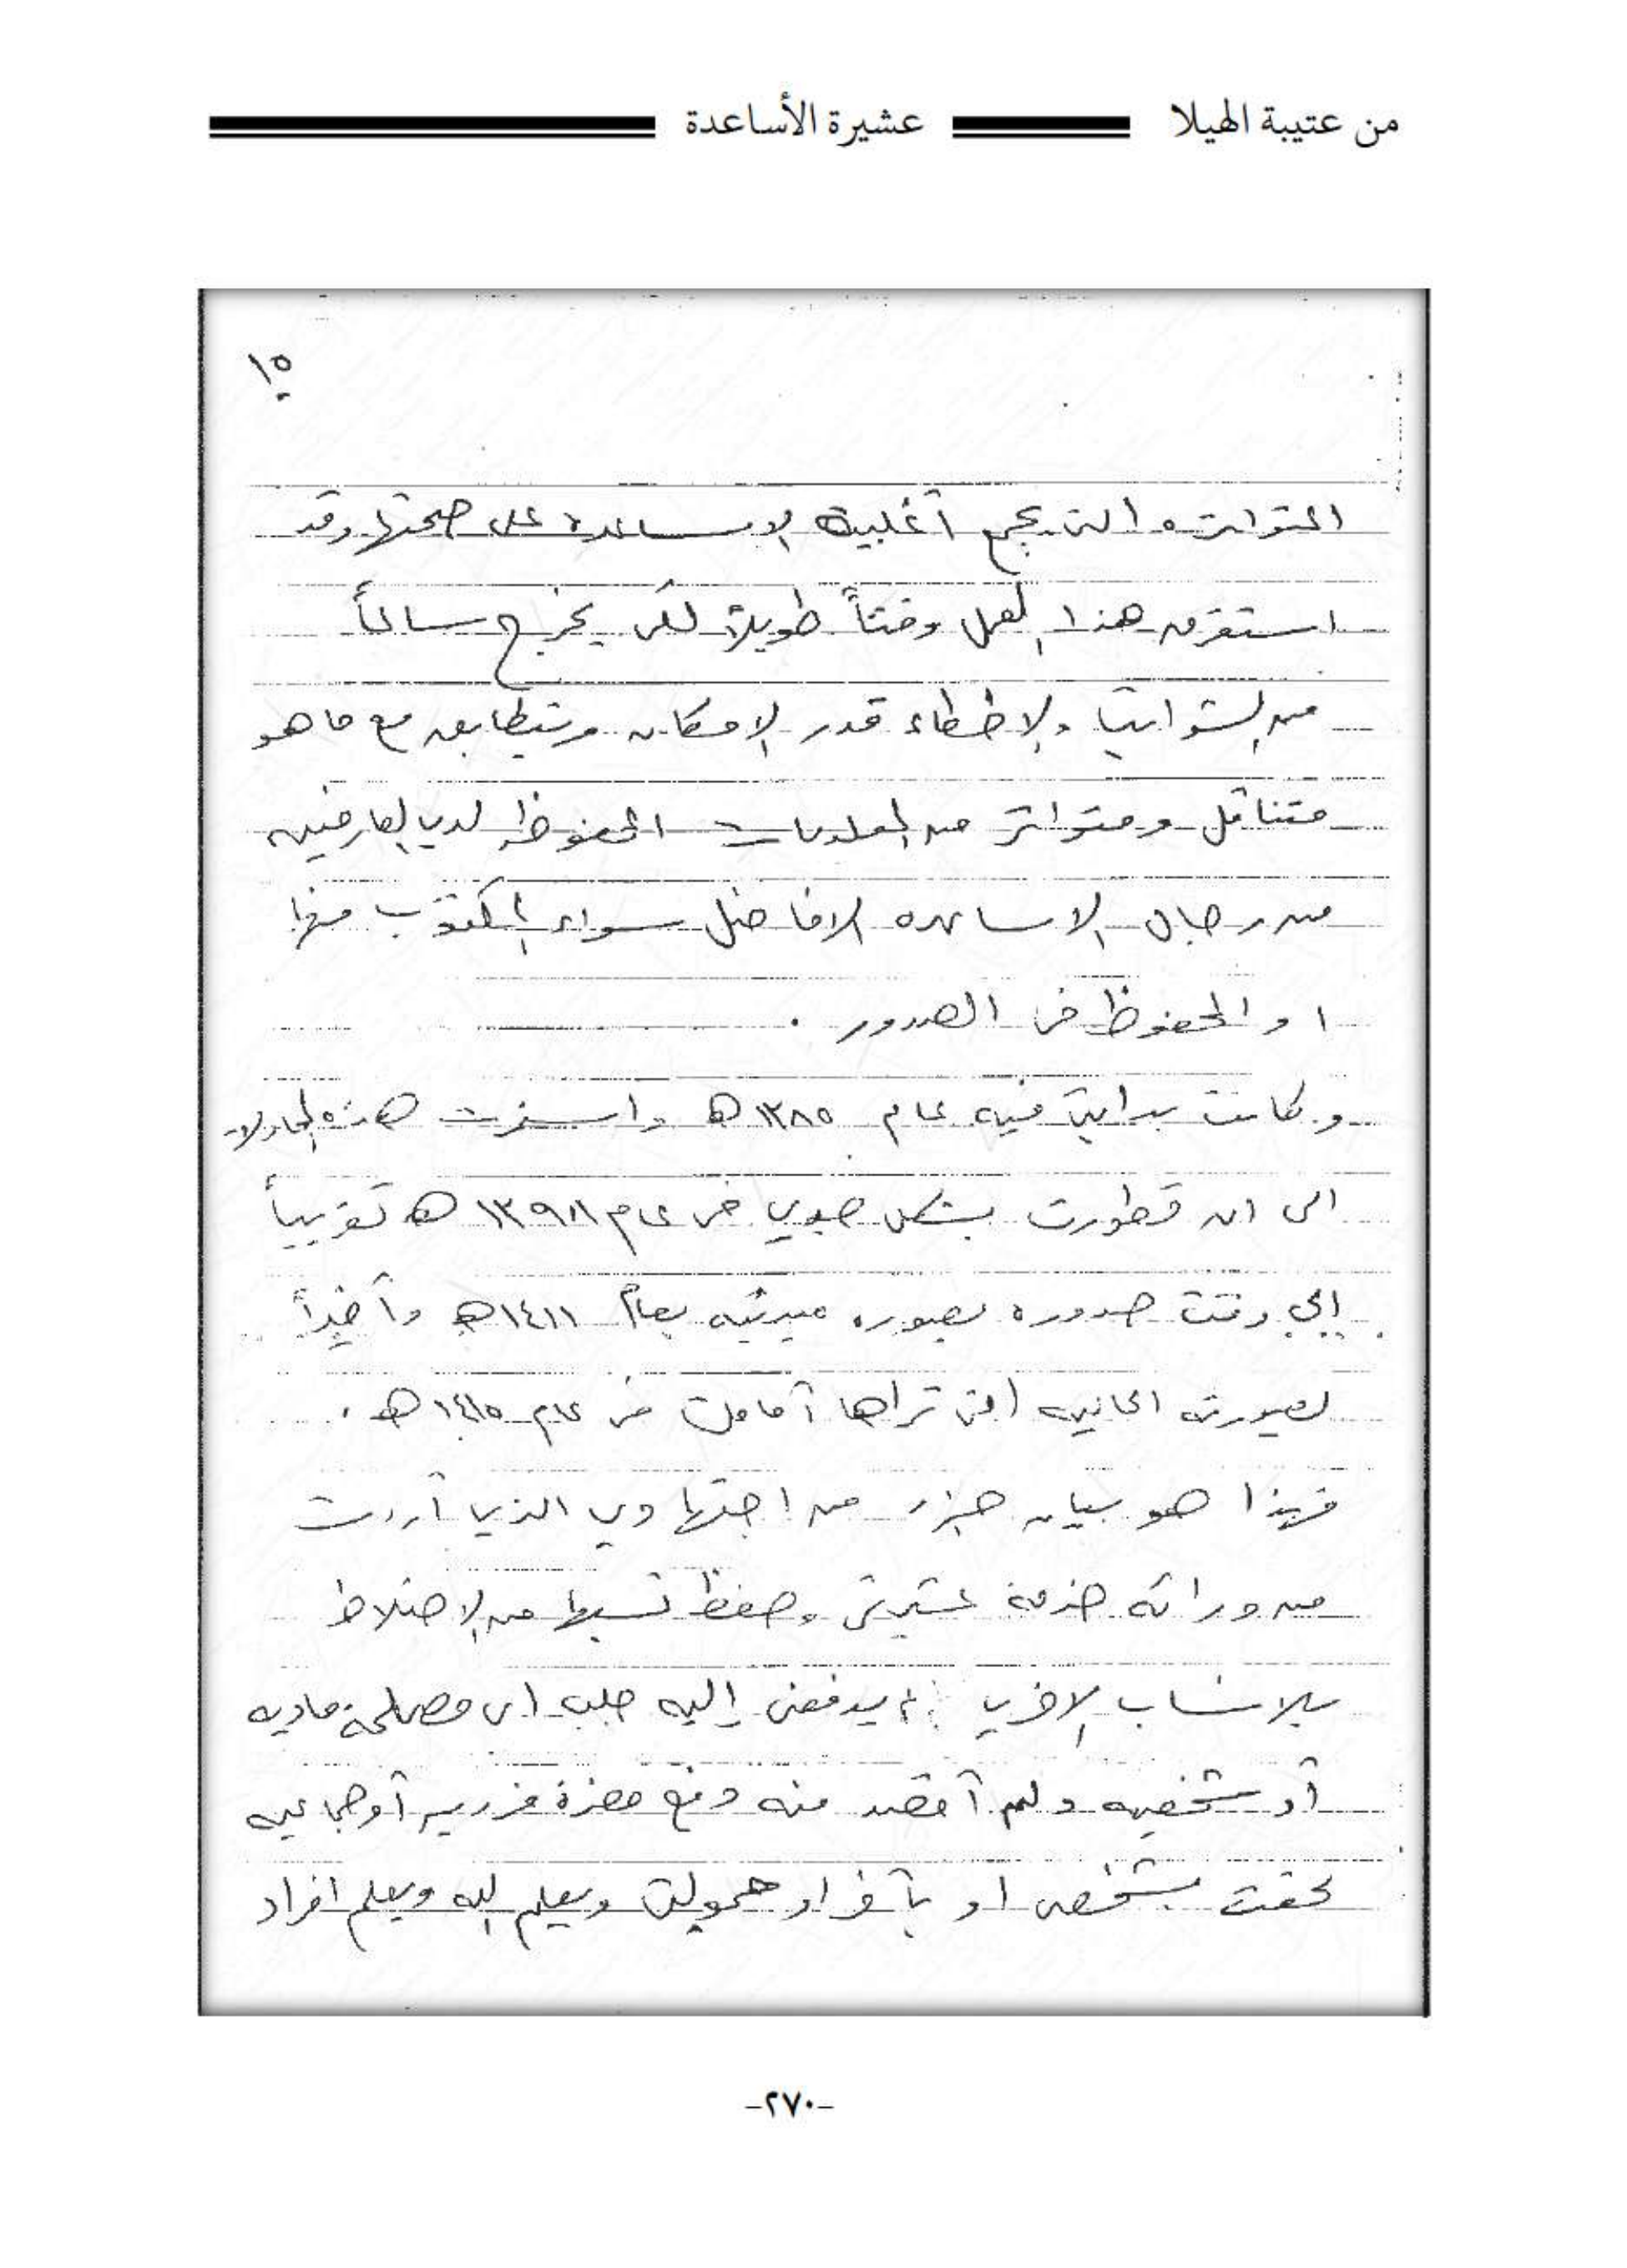 من عتيبة الهيلا عشيرة الأساعدة
١٥
المتواتره التي يجمع أغلبية الاساعدة على صحتها وقد
استغرق هذا العمل وقتاً طويلاً لكى يخرج سالماً
من الشوائب والاخطاء قدر الامكان ويتطابق مع ما هو
متناقل ومتواتر من المعلومات المحفوظه لدى العارفين
من رجال الاساعده الافاضل سواء المكتوب منها
او المحفوظ فى الصدور .
وكانت بدايتى فيه عام ١٣٨٥ هـ واستمرت هذه المحاولات
الى ان تطورت بشكل جدي فى عام ١٣٩٨ هـ تقريباً
إلى وقت صدوره بصوره مبدئيه بعام ١٤١١ هـ وأخيراً
بصورته الحاليه التى تراها أمامك فى عام ١٤١٥ هـ .
فهذا هو بيان جزء من اجتهادي الذي أردت
من ورائه خدمة عشيرتى وحفظ نسبها من الاختلاط
بالانساب الاخرى لم يدفعنى إليه جلب اى مصلحة ماديه
أو شخصيه ولم أقصد منه دفع مضرة فرديه أو جماعيه
لحقت بشخصى او بأفراد حمولتى ويعلم الله ويعلم افراد
-٢٧٠-